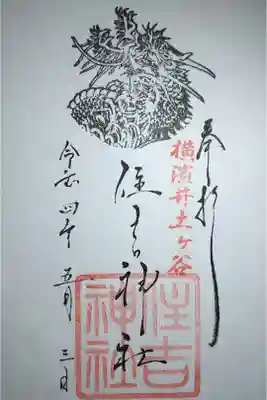 奉拝
横濱井土ヶ谷
住吉神社
住吉神社
令和四年 五月 三日